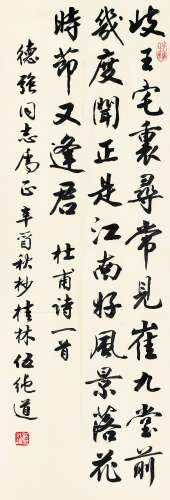 岐王宅裏尋常見崔九堂前
幾度聞正是江南好風景落花
時節又逢君 杜甫诗一首
德強同志屬正 辛酉秋杪桂林伍純道